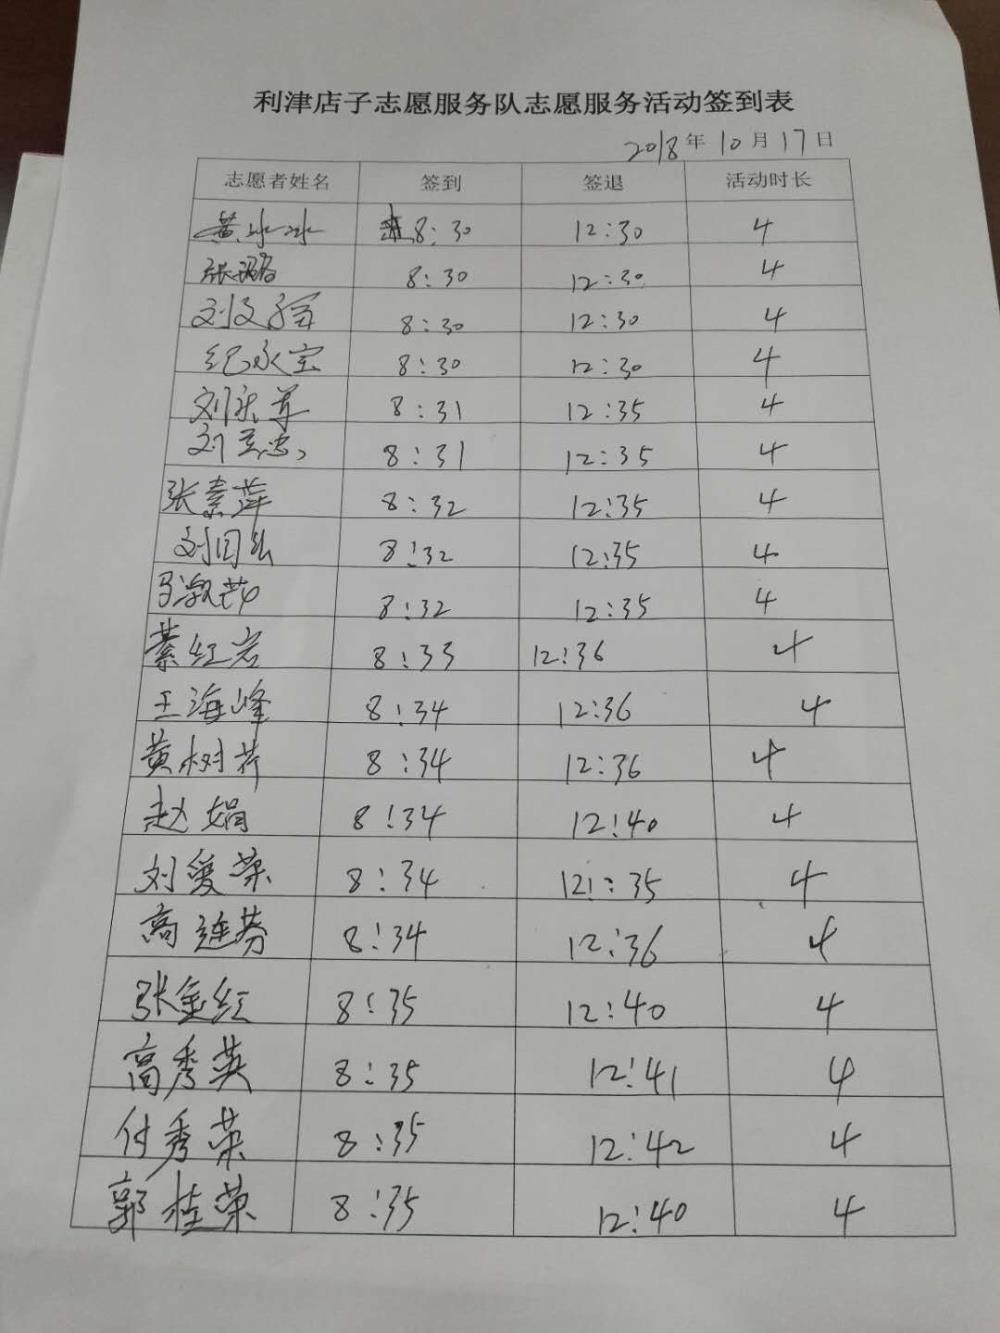 利津店子志愿服务队志愿服务活动签到表
2018年10月17日
志愿者姓名 签到 签退 活动时长
黄冰冰 8:30 12:30 4
张璐 8:30 12:30 4
刘文军 8:30 12:30 4
纪永宝 8:30 12:30 4
刘 8:31 12:35 4
刘 8:31 12:35 4
张素萍 8:32 12:35 4
刘 8:32 12:35 4
马淑 8:32 12:35 4
綦红岩 8:33 12:36 4
王海峰 8:34 12:36 4
黄树芹 8:34 12:36 4
赵娟 8:34 12:40 4
刘爱荣 8:34 12:35 4
高连芬 8:34 12:36 4
张金红 8:35 12:40 4
高秀英 8:35 12:41 4
付秀荣 8:35 12:42 4
郭桂荣 8:35 12:40 4